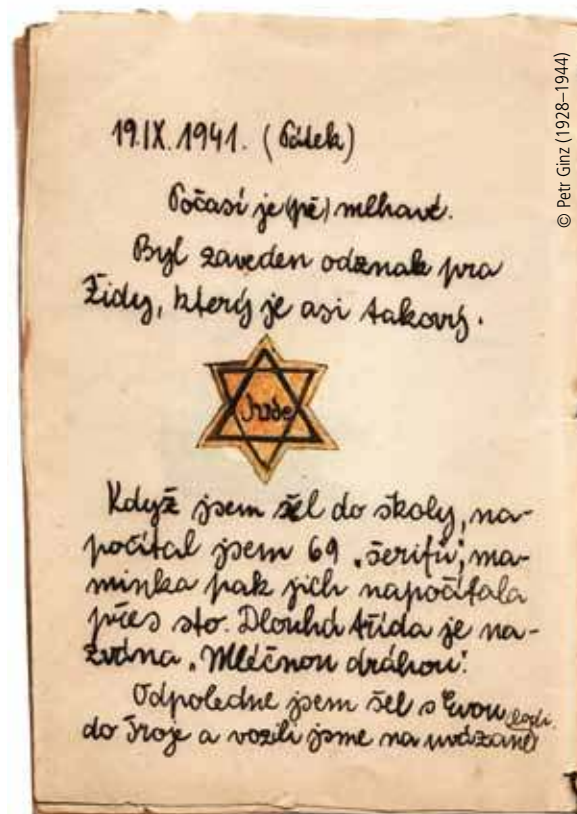 19.IX. 1941. (Pátek)
Počasí je (pě) mlhavé.
Byl zaveden odznak pro
Židy, který je asi takový.
Jude
Když jsem šel do školy, na-
počítal jsem 69 „šerifů“, ma-
minka pak jich napočítala
přes sto. Dlouhá třída je na-
zvána „Mléčnou dráhou“.
Odpoledne jsem šel s Evou
do Troje a vozili jsme na uvázané
© Petr Ginz (1928–1944)